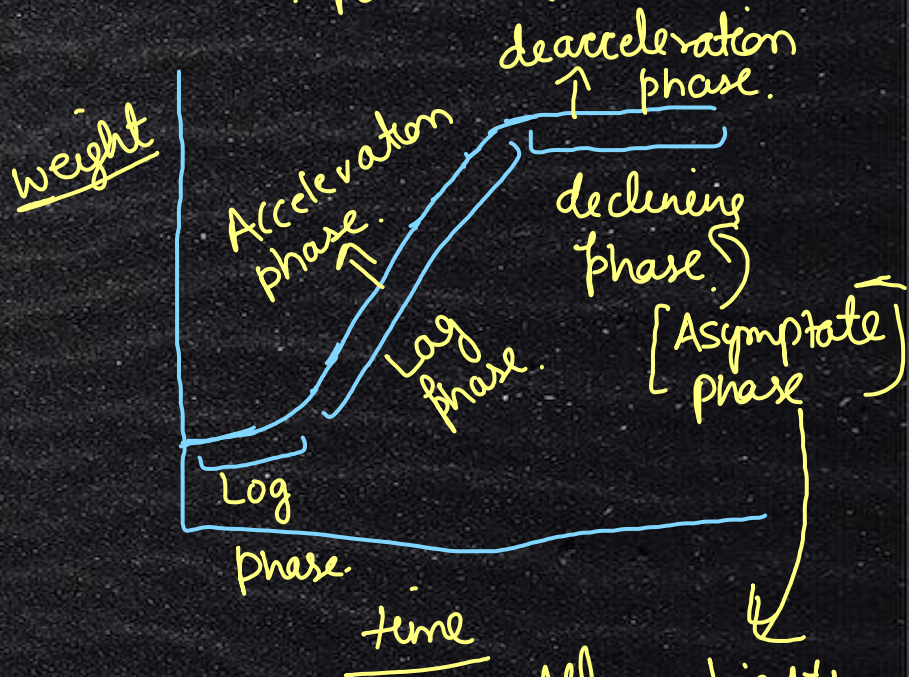 deacceleration
phase.
weight
Acceleration
phase.
declining
phase.
[Asymptate]
phase
Lag
phase.
Log
phase.
time